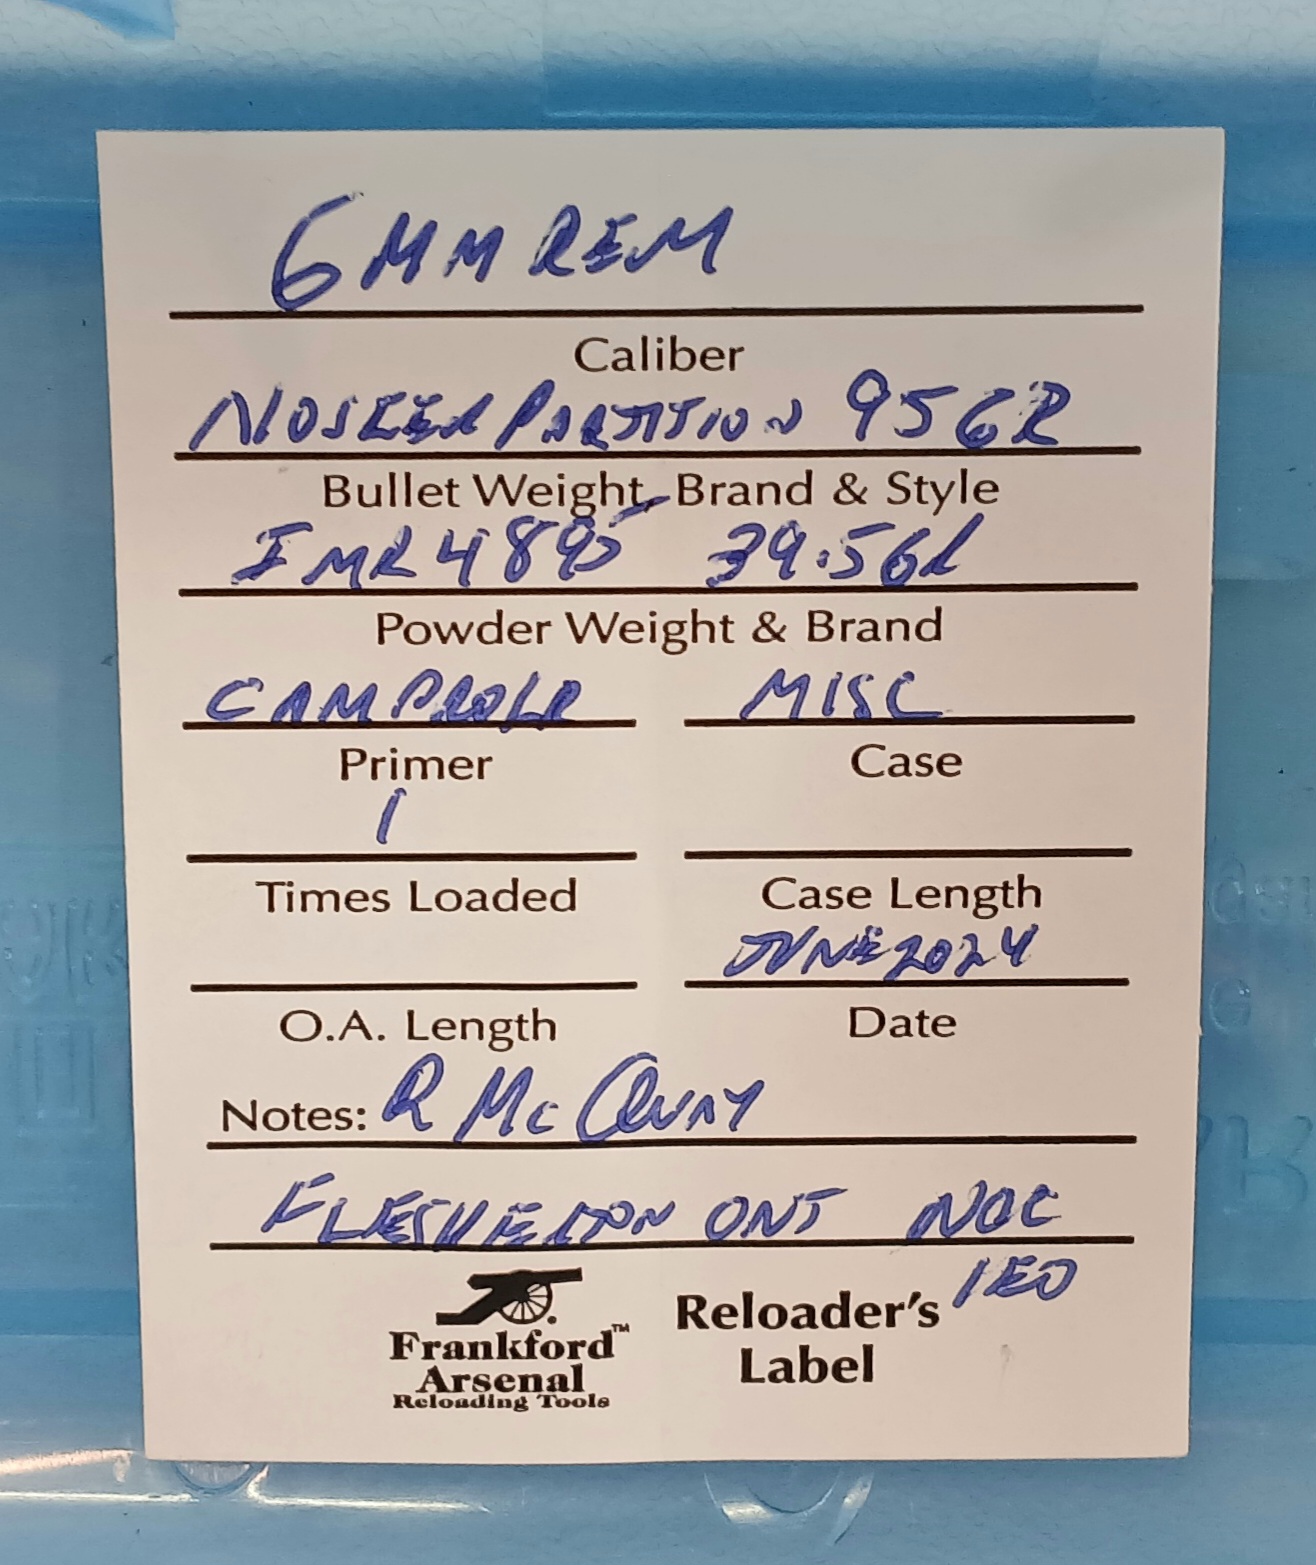 6MM REM
Caliber
NOSLER PARTITION 95GR
Bullet Weight, Brand & Style
IMR 4895 39.5GR
Powder Weight & Brand
CAMPRO LR MISC
Primer Case
1
Times Loaded Case Length
JUNE 2024
O.A. Length Date
Notes: R McQUAY
FLESHERTON ONT N0C
1E0
Frankford™ Reloader's
Arsenal Label
Reloading Tools